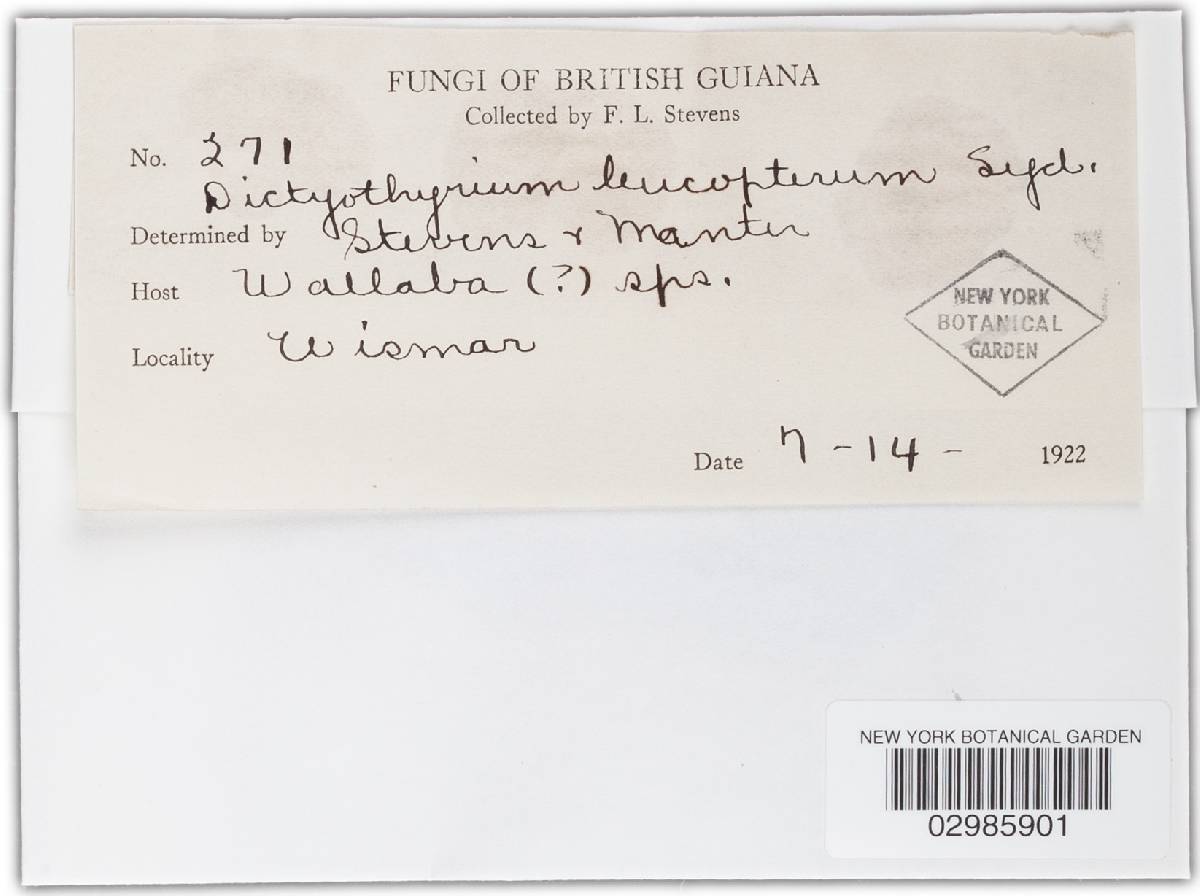 FUNGI OF BRITISH GUIANA
Collected by F. L. Stevens
No. 271
Dictyothyrium leucopterum Syd.
Determined by Stevens & Manter
Host Wallaba (?) sps.
Locality Wismar
NEW YORK
BOTANICAL
GARDEN
Date 7-14- 1922
NEW YORK BOTANICAL GARDEN
02985901